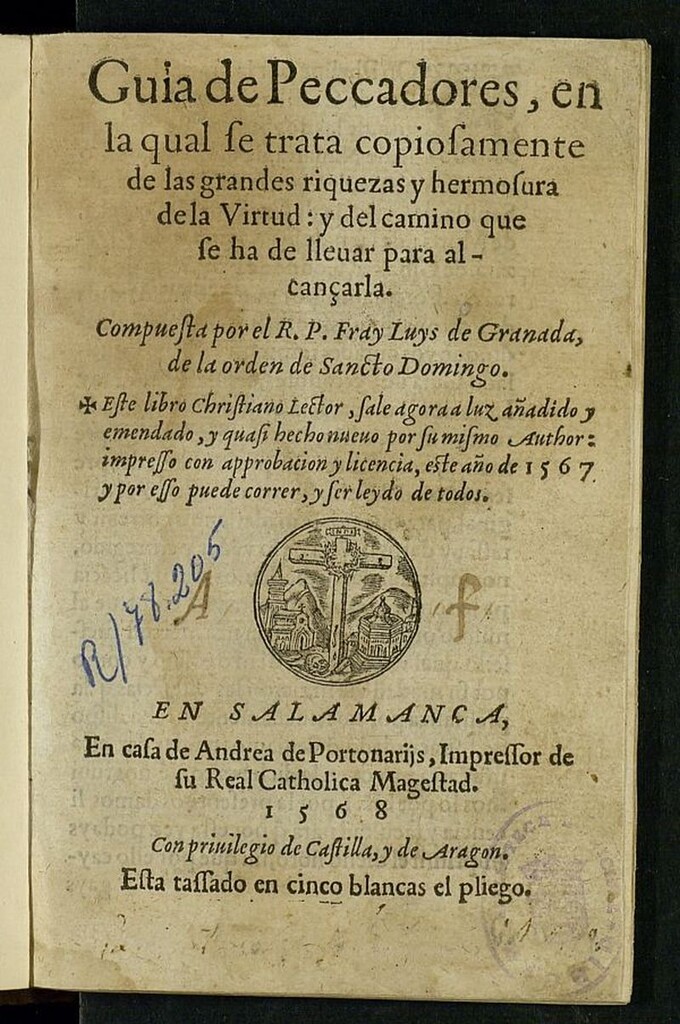 Guia de Peccadores, en
la qual ſe trata copioſamente
de las grandes riquezas y hermoſura
de la Virtud: y del camino que
ſe ha de lleuar para al-
cançarla.
Compueſta por el R. P. Fray Luys de Granada,
de la orden de Sancto Domingo.
✠ Eſte libro Chriſtiano Lector, ſale agora a luz añadido y
emendado, y quaſi hecho nueuo por ſu miſmo Author:
impreſſo con approbacion y licencia, eſte año de 1567.
y por eſſo puede correr, y ſer leydo de todos.
R/78.205
A f
EN SALAMANCA,
En caſa de Andrea de Portonarijs, Impreſſor de
ſu Real Catholica Mageſtad.
1568
Con priuilegio de Caſtilla, y de Aragon.
Eſta taſſado en cinco blancas el pliego.